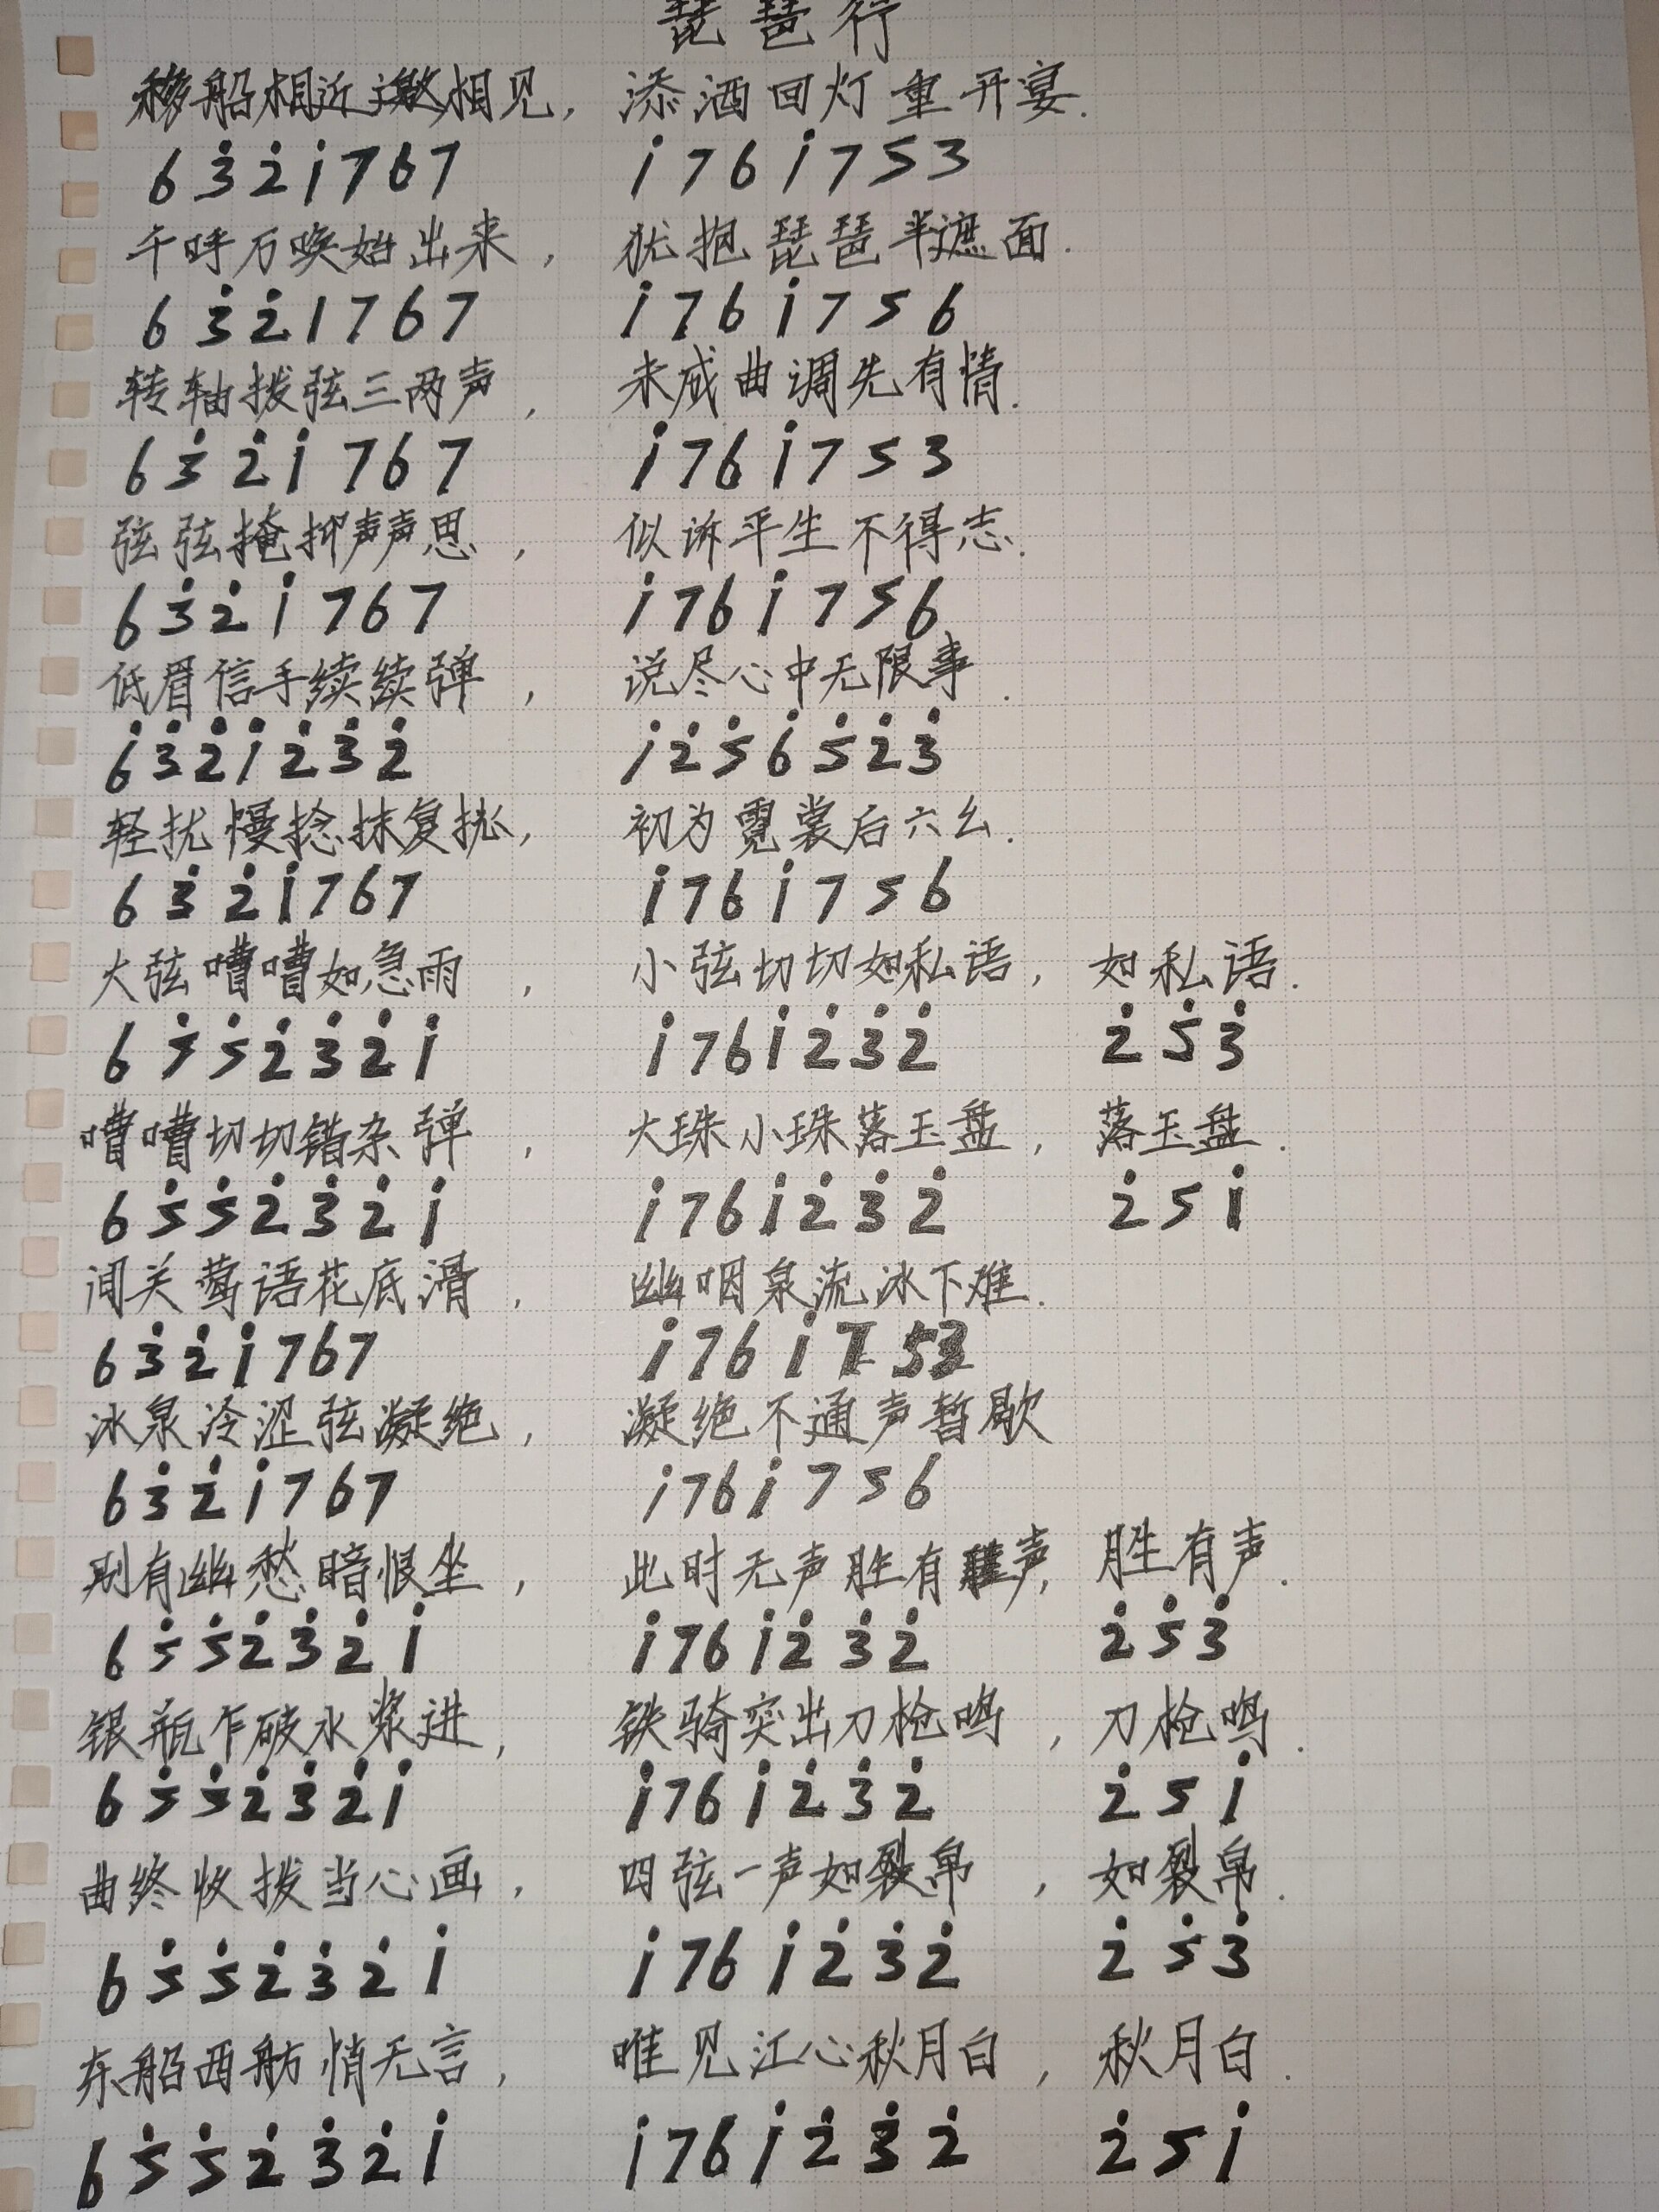 琵琶行
移船相近邀相见, 添酒回灯重开宴.
6 3̇ 2̇ 1̇ 7 6̇ 7 1̇ 7 6 1̇ 7 5 3
千呼万唤始出来, 犹抱琵琶半遮面.
6 3̇ 2̇ 1 7 6 7 1̇ 7 6 1̇ 7 5 6
转轴拨弦三两声, 未成曲调先有情.
6 3̇ 2̇ 1̇ 7 6 7 1̇ 7 6 1̇ 7 5 3
弦弦掩抑声声思, 似诉平生不得志.
6 3̇ 2̇ 1̇ 7 6 7 1̇ 7 6 1̇ 7 5 6
低眉信手续续弹, 说尽心中无限事.
6̇ 3̇ 2̇ 1̇ 2̇ 3̇ 2̇ 1̇ 2̇ 5̇ 6̇ 5̇ 2̇ 3̇
轻拢慢捻抹复挑, 初为霓裳后六幺.
6 3̇ 2̇ 1̇ 7 6 7 1̇ 7 6 1̇ 7 5 6
大弦嘈嘈如急雨, 小弦切切如私语, 如私语.
6 5̇ 5̇ 2̇ 3̇ 2̇ 1̇ 1̇ 7 6 1̇ 2̇ 3̇ 2̇ 2̇ 5̇ 3̇
嘈嘈切切错杂弹, 大珠小珠落玉盘, 落玉盘.
6 5̇ 5̇ 2̇ 3̇ 2̇ 1̇ 1̇ 7 6 1̇ 2̇ 3̇ 2̇ 2̇ 5 1̇
间关莺语花底滑, 幽咽泉流冰下难.
6 3̇ 2̇ 1̇ 7 6 7 1̇ 7 6 1̇ 7 5 3
冰泉冷涩弦凝绝, 凝绝不通声暂歇
6 3̇ 2̇ 1̇ 7 6 7 1̇ 7 6 1̇ 7 5 6
别有幽愁暗恨生, 此时无声胜有声, 胜有声.
6 5̇ 5̇ 2̇ 3̇ 2̇ 1̇ 1̇ 7 6 1̇ 2̇ 3̇ 2̇ 2̇ 5̇ 3̇
银瓶乍破水浆进, 铁骑突出刀枪鸣, 刀枪鸣.
6 5̇ 5̇ 2̇ 3̇ 2̇ 1̇ 1̇ 7 6 1̇ 2̇ 3̇ 2̇ 2̇ 5 1̇
曲终收拨当心画, 四弦一声如裂帛, 如裂帛.
6 5̇ 5̇ 2̇ 3̇ 2̇ 1̇ 1̇ 7 6 1̇ 2̇ 3̇ 2̇ 2̇ 5̇ 3̇
东船西舫悄无言, 唯见江心秋月白, 秋月白.
6 5̇ 5̇ 2̇ 3̇ 2̇ 1̇ 1̇ 7 6 1̇ 2̇ 3̇ 2̇ 2̇ 5 1̇